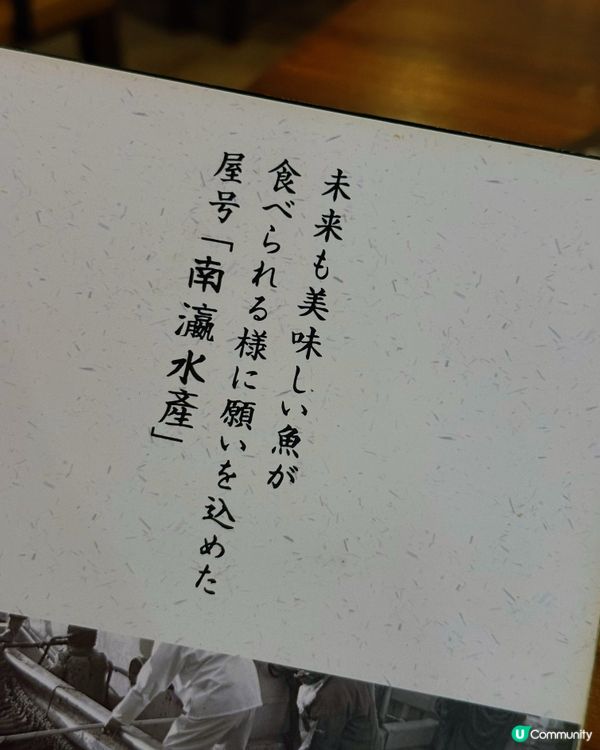 未来も美味しい魚が
食べられる様に願いを込めた
屋号「南瀛水產」
U Community